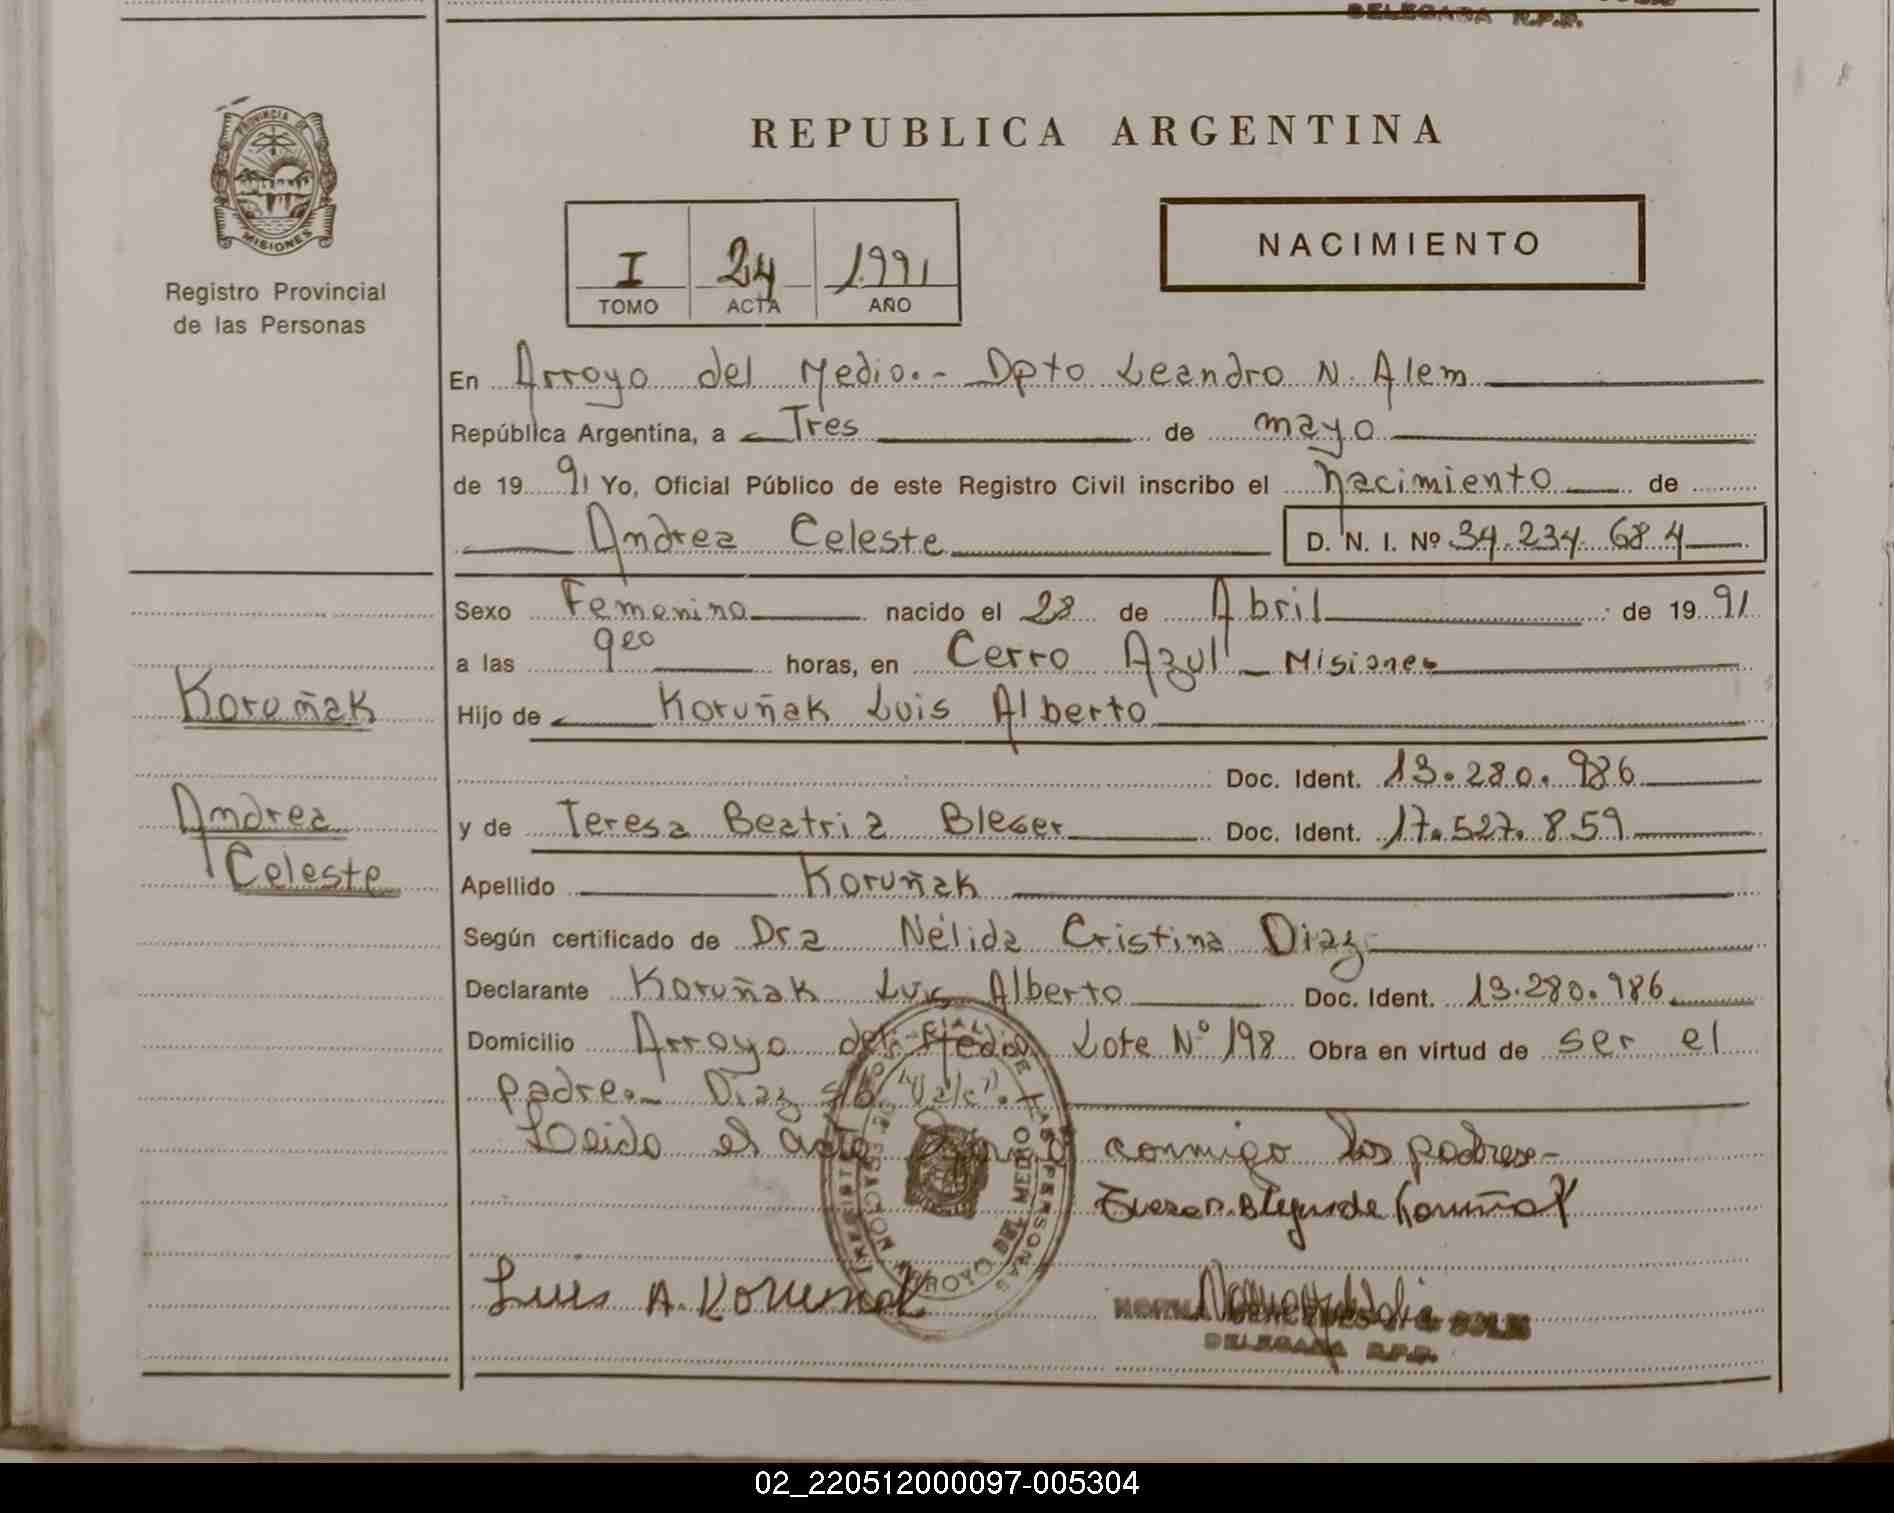 DELEGADA R.P.P.
PROVINCIA DE
MISIONES
Registro Provincial
de las Personas
REPUBLICA ARGENTINA
NACIMIENTO
I 24 1991
TOMO ACTA AÑO
En Arroyo del Medio.- Dpto Leandro N. Alem
República Argentina, a Tres de mayo
de 19 91 Yo, Oficial Público de este Registro Civil inscribo el Nacimiento de
Andrea Celeste D. N. I. Nº 34.234.684
Sexo Femenino nacido el 28 de Abril de 19 91
a las 9 horas, en Cerro Azul - Misiones
Koruñak
Hijo de Koruñak Luis Alberto
Doc. Ident. 13.280.986
Andrea
y de Teresa Beatriz Bleger Doc. Ident. 17.527.859
Celeste
Apellido Koruñak
Según certificado de Dra Nélida Cristina Diaz
Declarante Koruñak Luis Alberto Doc. Ident. 13.280.986
Domicilio Arroyo del Medio Lote Nº 198 Obra en virtud de ser el
padre.- Diaz s/b "Vale".-
Leida el acta conmigo los padres-
Luis A. Koruñak
DELEGADA R.P.P.
02_220512000097-005304